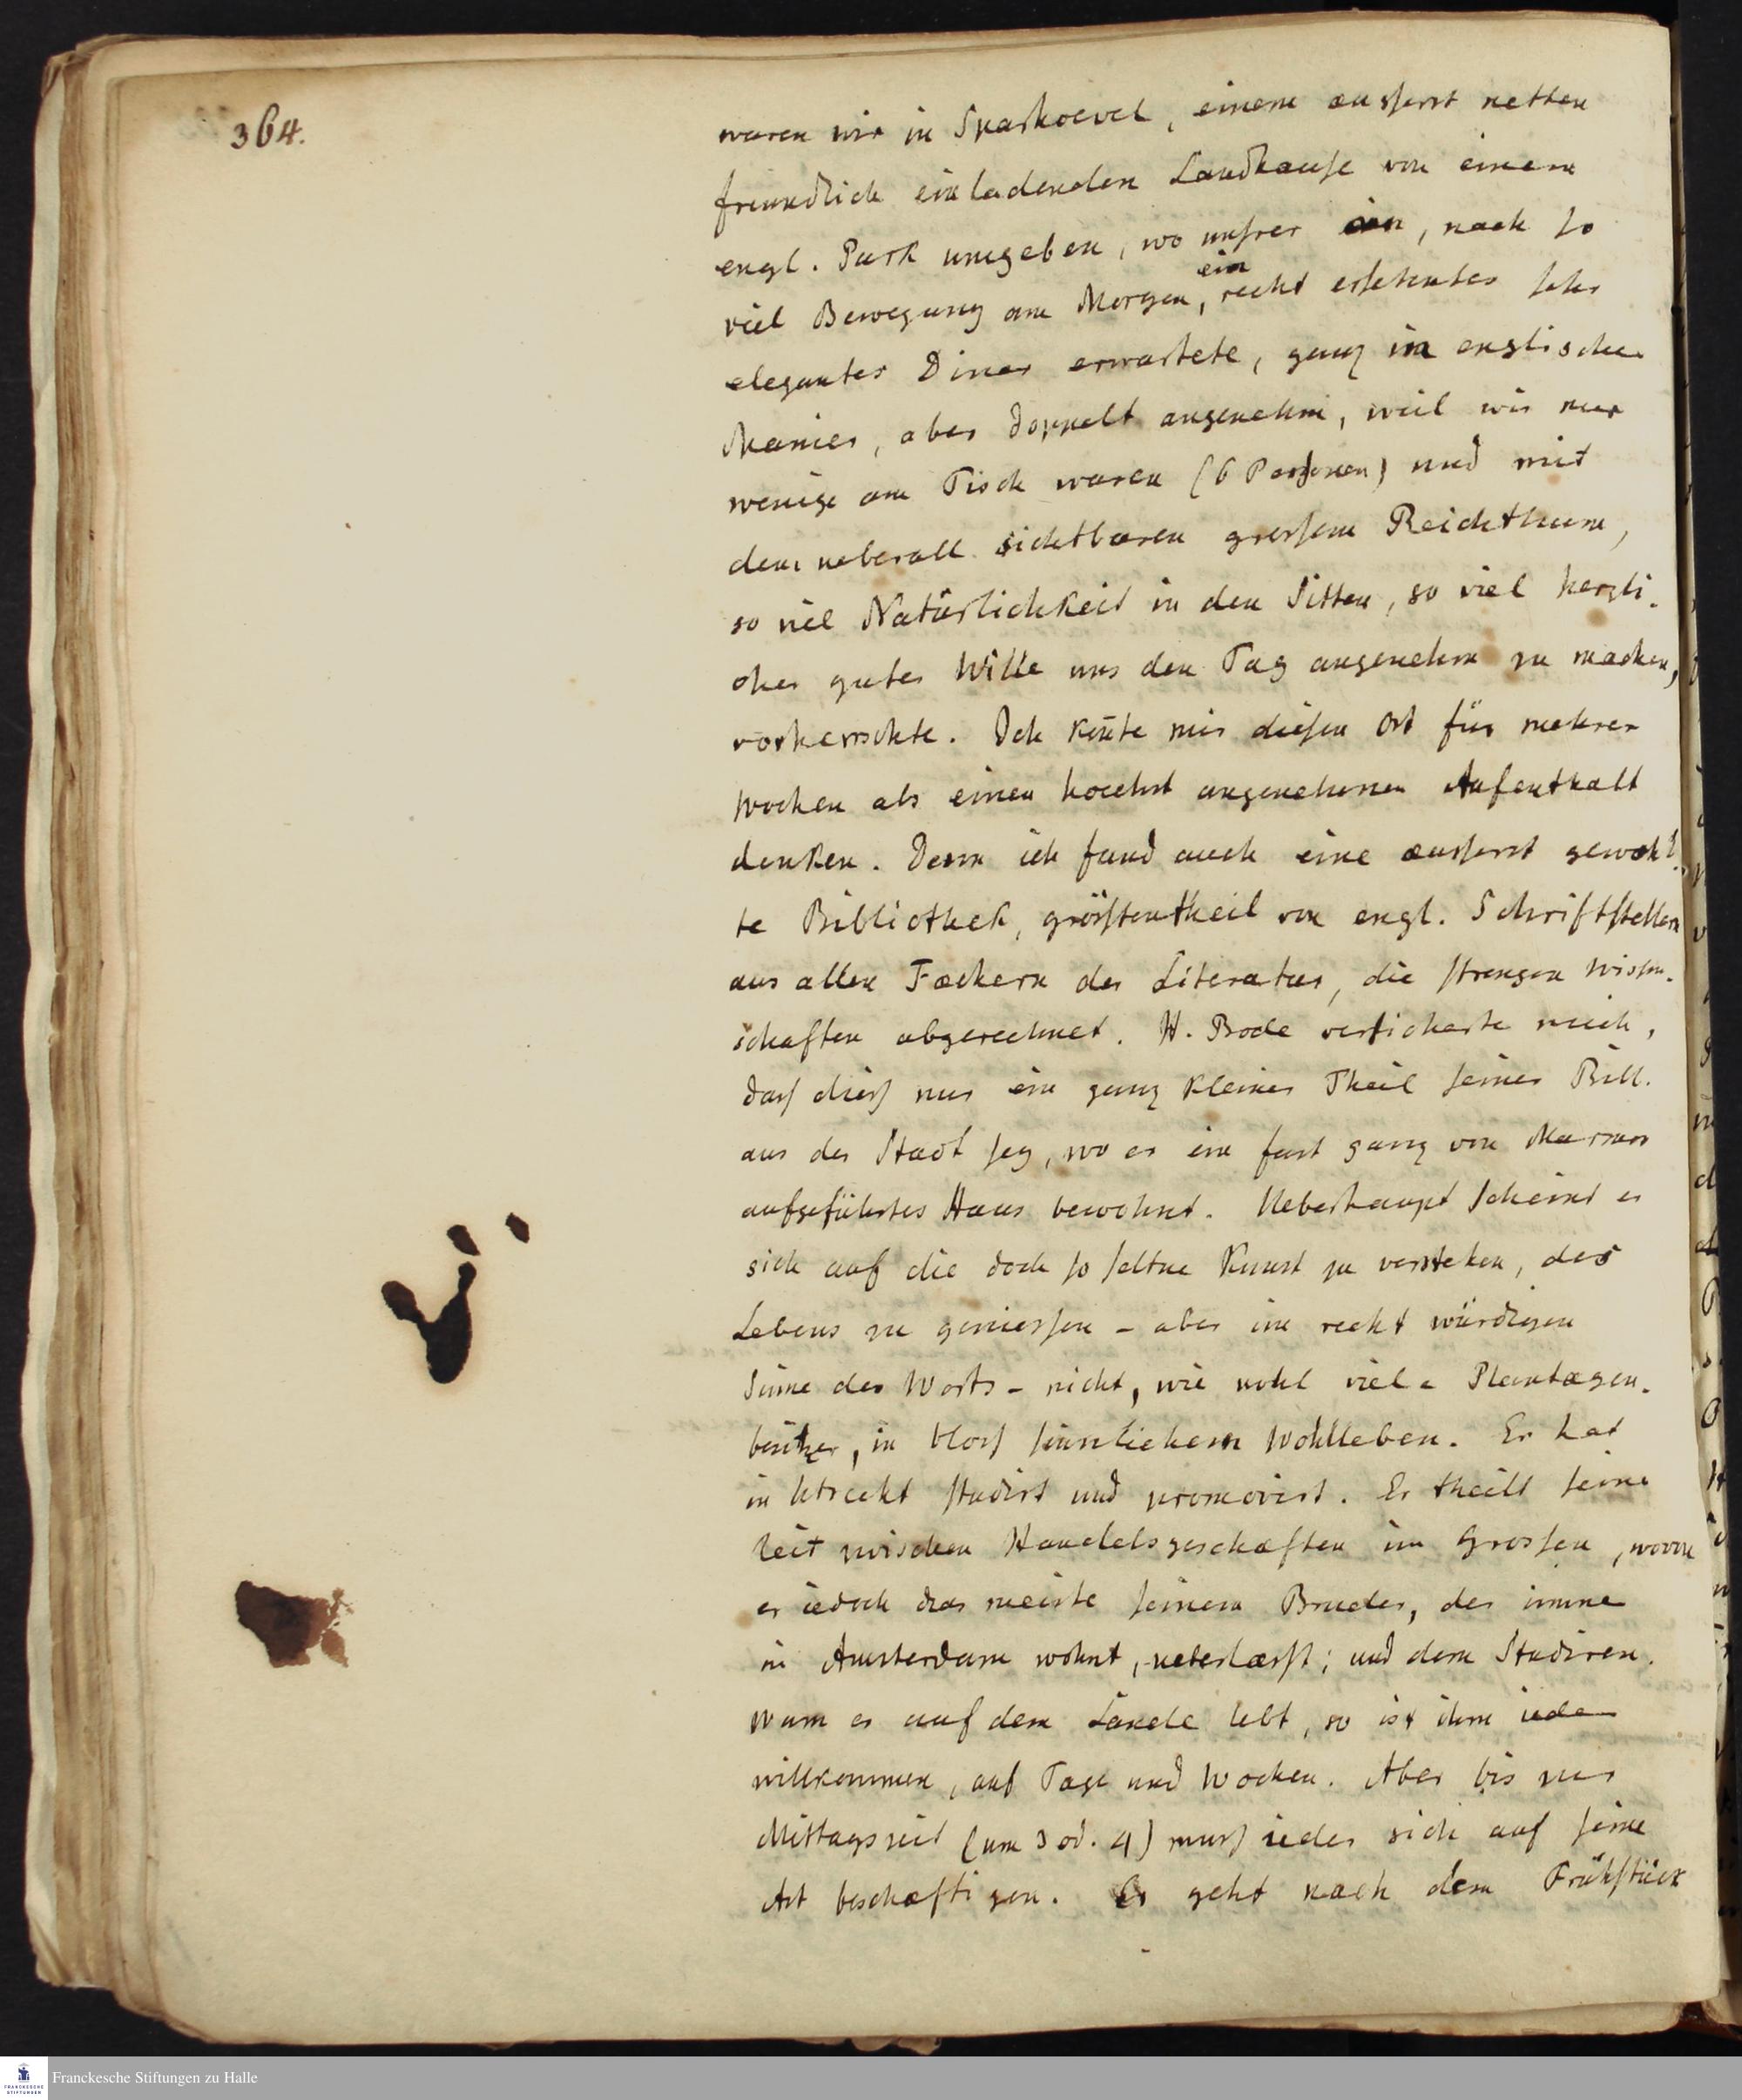 364.
waren wir in Sparhoevel, einem æusserst netten
freundlich einladenden Landhause von einem
engl. Park umgeben, wo unsrer ein, nach so
viel Bewegung am Morgen, ein recht ersehntes sehr
elegantes Diner erwartete, ganz in englischer
Manier, aber doppelt angenehm, weil wir nur
wenige am Tisch waren (6 Personen) und mit
dem ueberall sichtbaren grossem Reichthum,
so viel Natürlichkeit in den Sitten, so viel herzli-
cher guter Wille uns den Tag angenehm zu machen,
vorherrschte. Ich kōnte mir diesen Ort für mehrer
Wochen als einen hoechst angenehmen Aufenthalt
denken. Denn ich fand auch eine æusserst gewæhl-
te Bibliothek, grösstentheil von engl. Schriftstellern
aus allen Fæchern der Literatur, die strengen Wissen-
schaften abgerechnet. H. Bode versicherte mich,
dass diess nur ein ganz kleiner Theil seiner Bibl.
aus der Stadt sey, wo er ein fast ganz von Marmor
aufgeführtes Haus bewohnt. Ueberhaupt scheint er
sich auf die doch so seltne Kunst zu verstehen, des
Lebens zu geniessen - aber im recht würdigen
Sinne des Worts - nicht, wie wohl viele Plantagen-
besitzer, in bloss sinnlichem Wohlleben. Er hat
in Utrecht studirt und promovirt. Er theilt seine
Zeit zwischen Handelsgeschæften im Grossen, wovon
er iedoch das meiste seinem Bruder, der immer
in Amsterdam wohnt, ueberlæsst; und dem Studiren.
Wann er auf dem Lande lebt, so ist ihm ieder
willkommen, auf Tage und Wochen. Aber bis zur
Mittagszeit (um 3 od. 4) muss ieder sich auf seine
Art beschæftigen. Er geht nach dem Frühstück
Franckesche Stiftungen zu Halle